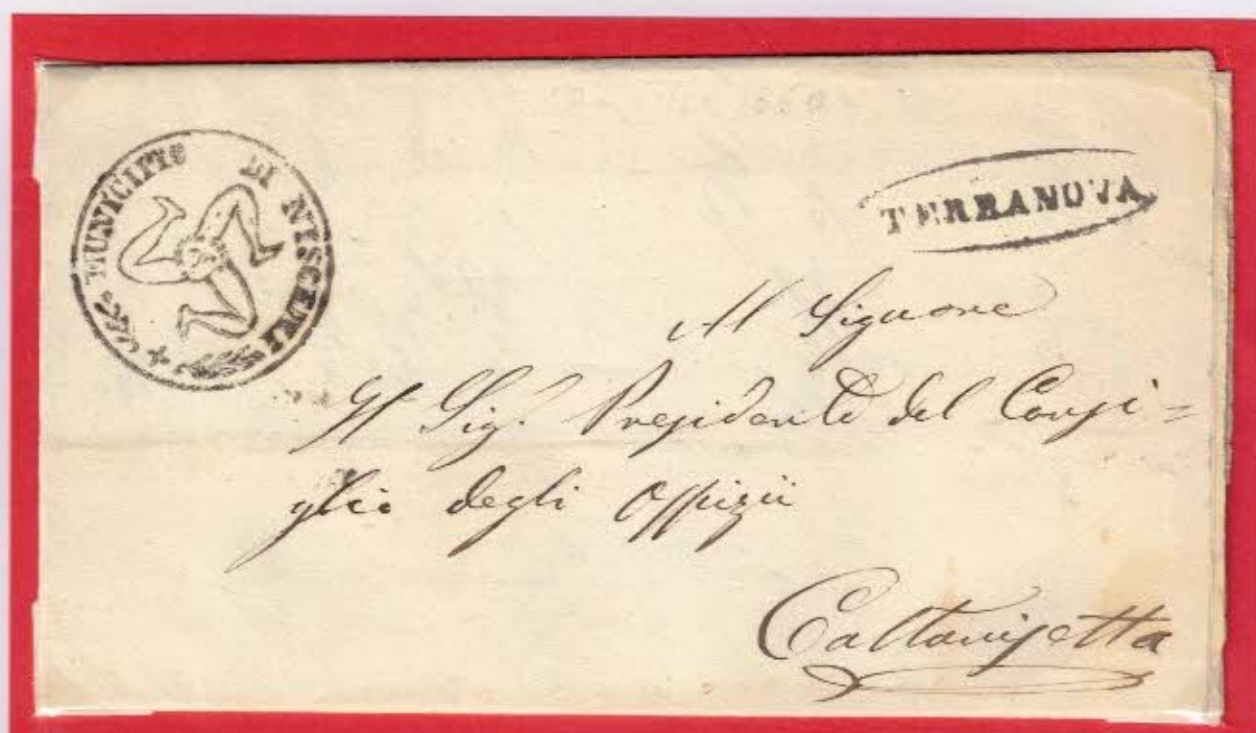 MUNICIPIO DI NISCEMI
TERRANOVA
Al Signore
Il Sig.r Presidente del Consi=
glio degli Ospizii
Caltanisetta